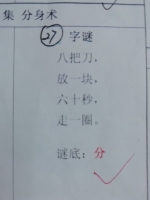 集 分身术
27 字谜
八把刀，
放一块，
六十秒，
走一圈。
谜底：分